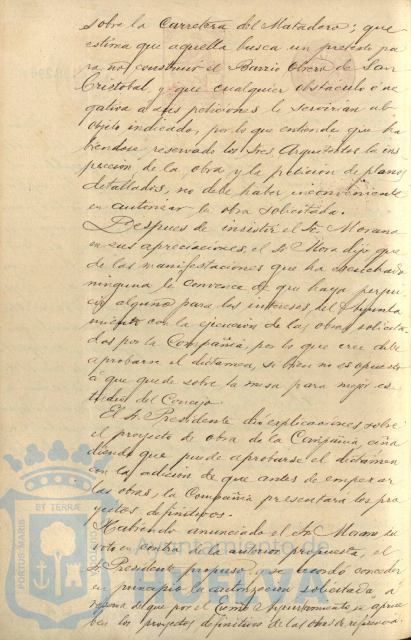 sobre la Carretera del Matadero; que
estima que aquella busca un pretesto pa
ra no construir el Barrio Obrero de San
Cristobal, y que cualquier obstáculo ó ne
gativa a sus peticiones le servirian al
objeto indicado, por lo que entiende que ha
biendose reservado los Sres Arquitectos la ins
pección de la obra y la petición de planos
detallados, no debe haber inconveniente
en autorizar la obra solicitada.
Despues de insistir el Sr. Morano
en sus apreciaciones, el Sr. Mora dijo que
de las manifestaciones que ha escuchado
ninguna le convence de que haya perjui
cio alguno para los intereses del Ayunta
miento con la ejecución de las obras solicita
das por la Compañia, por lo que cree debe
aprobarse el dictamen, si bien no es opuesto
á que quede sobre la mesa para mejor es
tudio del Concejo.
El Sr. Presidente dió explicaciones sobre
el proyecto de obra de la Compañia aña
diendo que puede aprobarse el dictámen
con la adición de que antes de empezar
las obras, la Compañia presentará los pro
yectos definitivos.
Habiendo anunciado el Sr. su
voto en contra de la anterior propuesta, el
Sr. Presidente propuso y se acordó conceder
en principio la autorización solicitada, á
reserva de que por el Excmo Ayuntamiento se aprue
ben los proyectos definitivos de las obras de
PORTUS MARIS
ET TERRAE
CUSTODIA
Ayuntamiento de
HUELVA